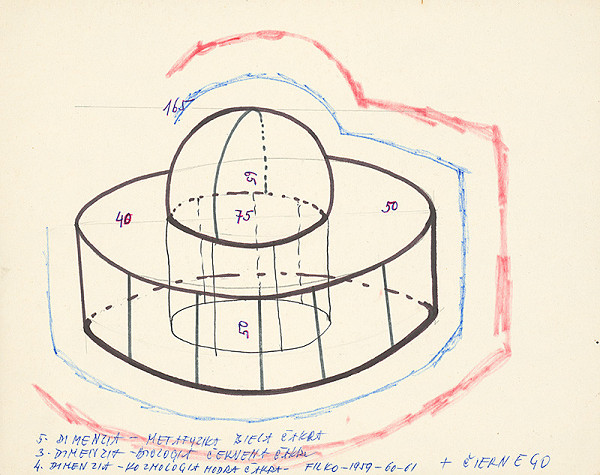 165
65
40
75
50
50
5. DIMENZIA - METAFYZIKA BIELA ČAKRA
3. DIMENZIA - BIOLOGIA ČERVENA ČAKRA
4. DIMENZIA - KOZMOLOGIA MODRA ČAKRA - FILKO - 1959-60-61 + ČIERN EGO